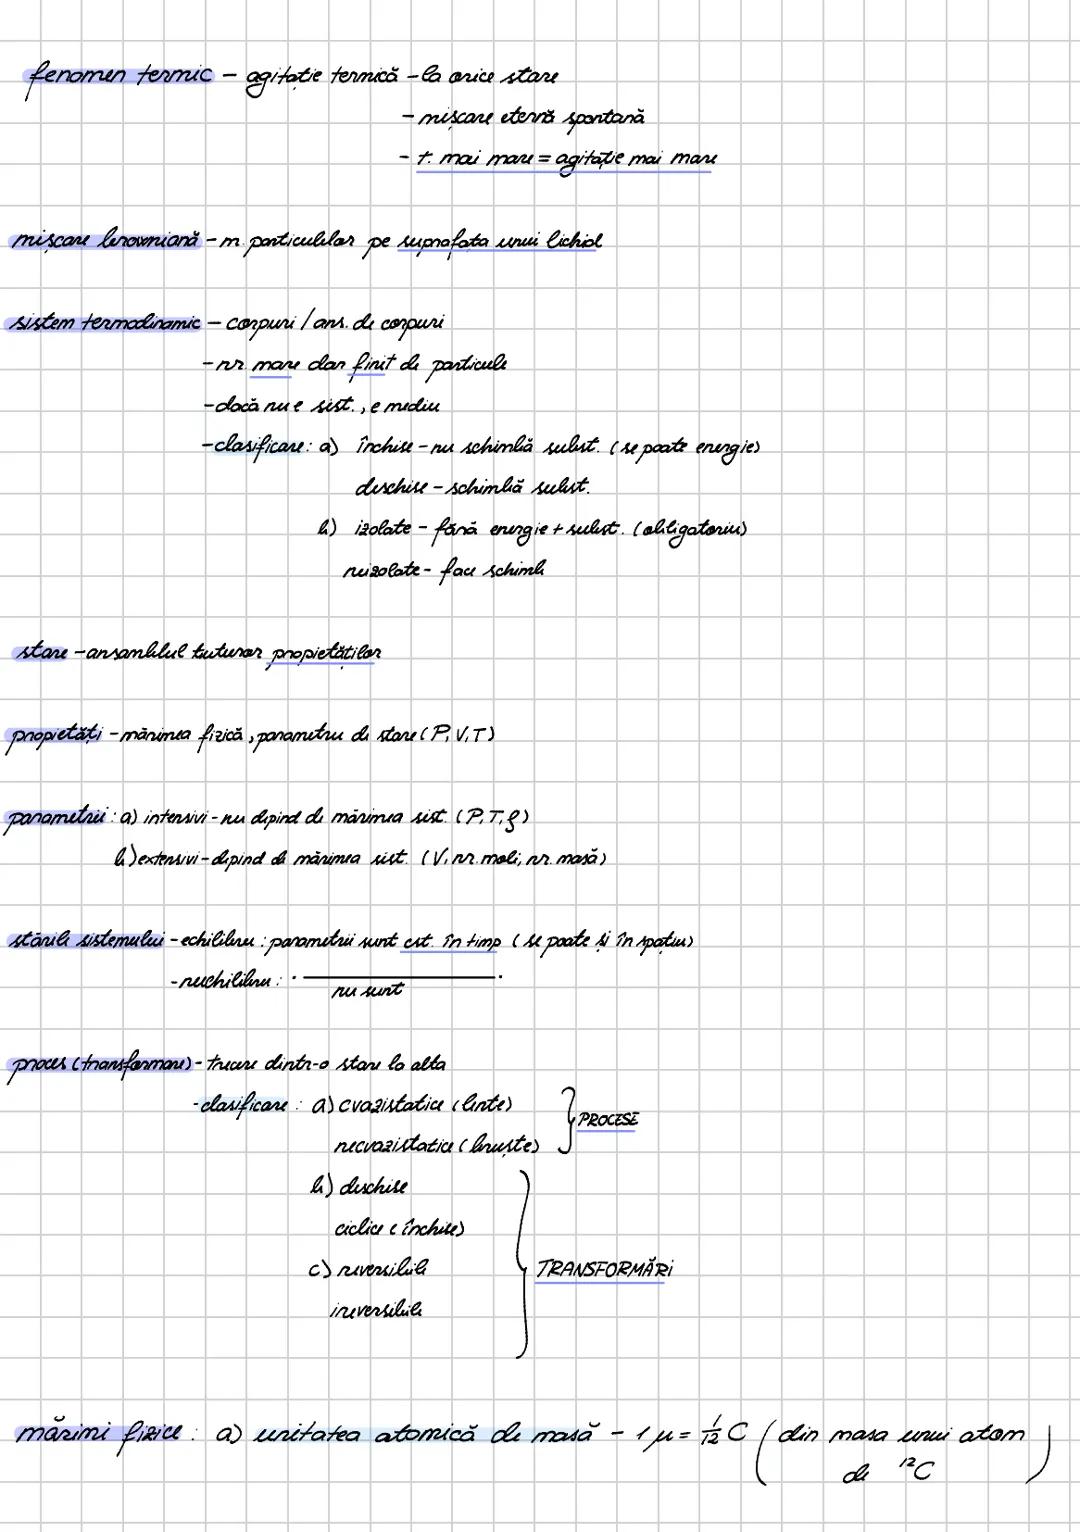 fenomen termic - agitație termică - la orice stare
- mișcare eternă spontană
- t. mai mare = agitație mai mare
mișcare browniană - m. particulelor pe suprafața unui lichid
sistem termodinamic - corpuri / ans. de corpuri
- nr. mare dar finit de particule
- dacă nu e sist., e mediu
- clasificare: a) închise - nu schimbă subst. (se poate energie)
deschise - schimbă subst.
b) izolate - fără energie + subst. (obligatoriu)
neizolate - fac schimb
stare - ansamblul tuturor propietăților
propietăți - mărimea fizică, parametru de stare (P, V, T)
parametrii: a) intensivi - nu depind de mărimea sist. (P, T, ρ)
b) extensivi - depind de mărimea sist. (V, nr. moli, nr. masă)
stările sistemului - echilibru: parametrii sunt cst. în timp (se poate și în spațiu)
- neechilibru:
nu sunt
proces (transformare) - trecere dintr-o stare la alta
- clasificare: a) cvazistatice (lente)
PROCESE
necvazistatice (bruște)
b) deschise
ciclice (închise)
c) reversibile
TRANSFORMĂRi
ireversibile
mărimi fizice: a) unitatea atomică de masă - 1 μ = 1/12 C (din masa unui atom
de ¹²C)